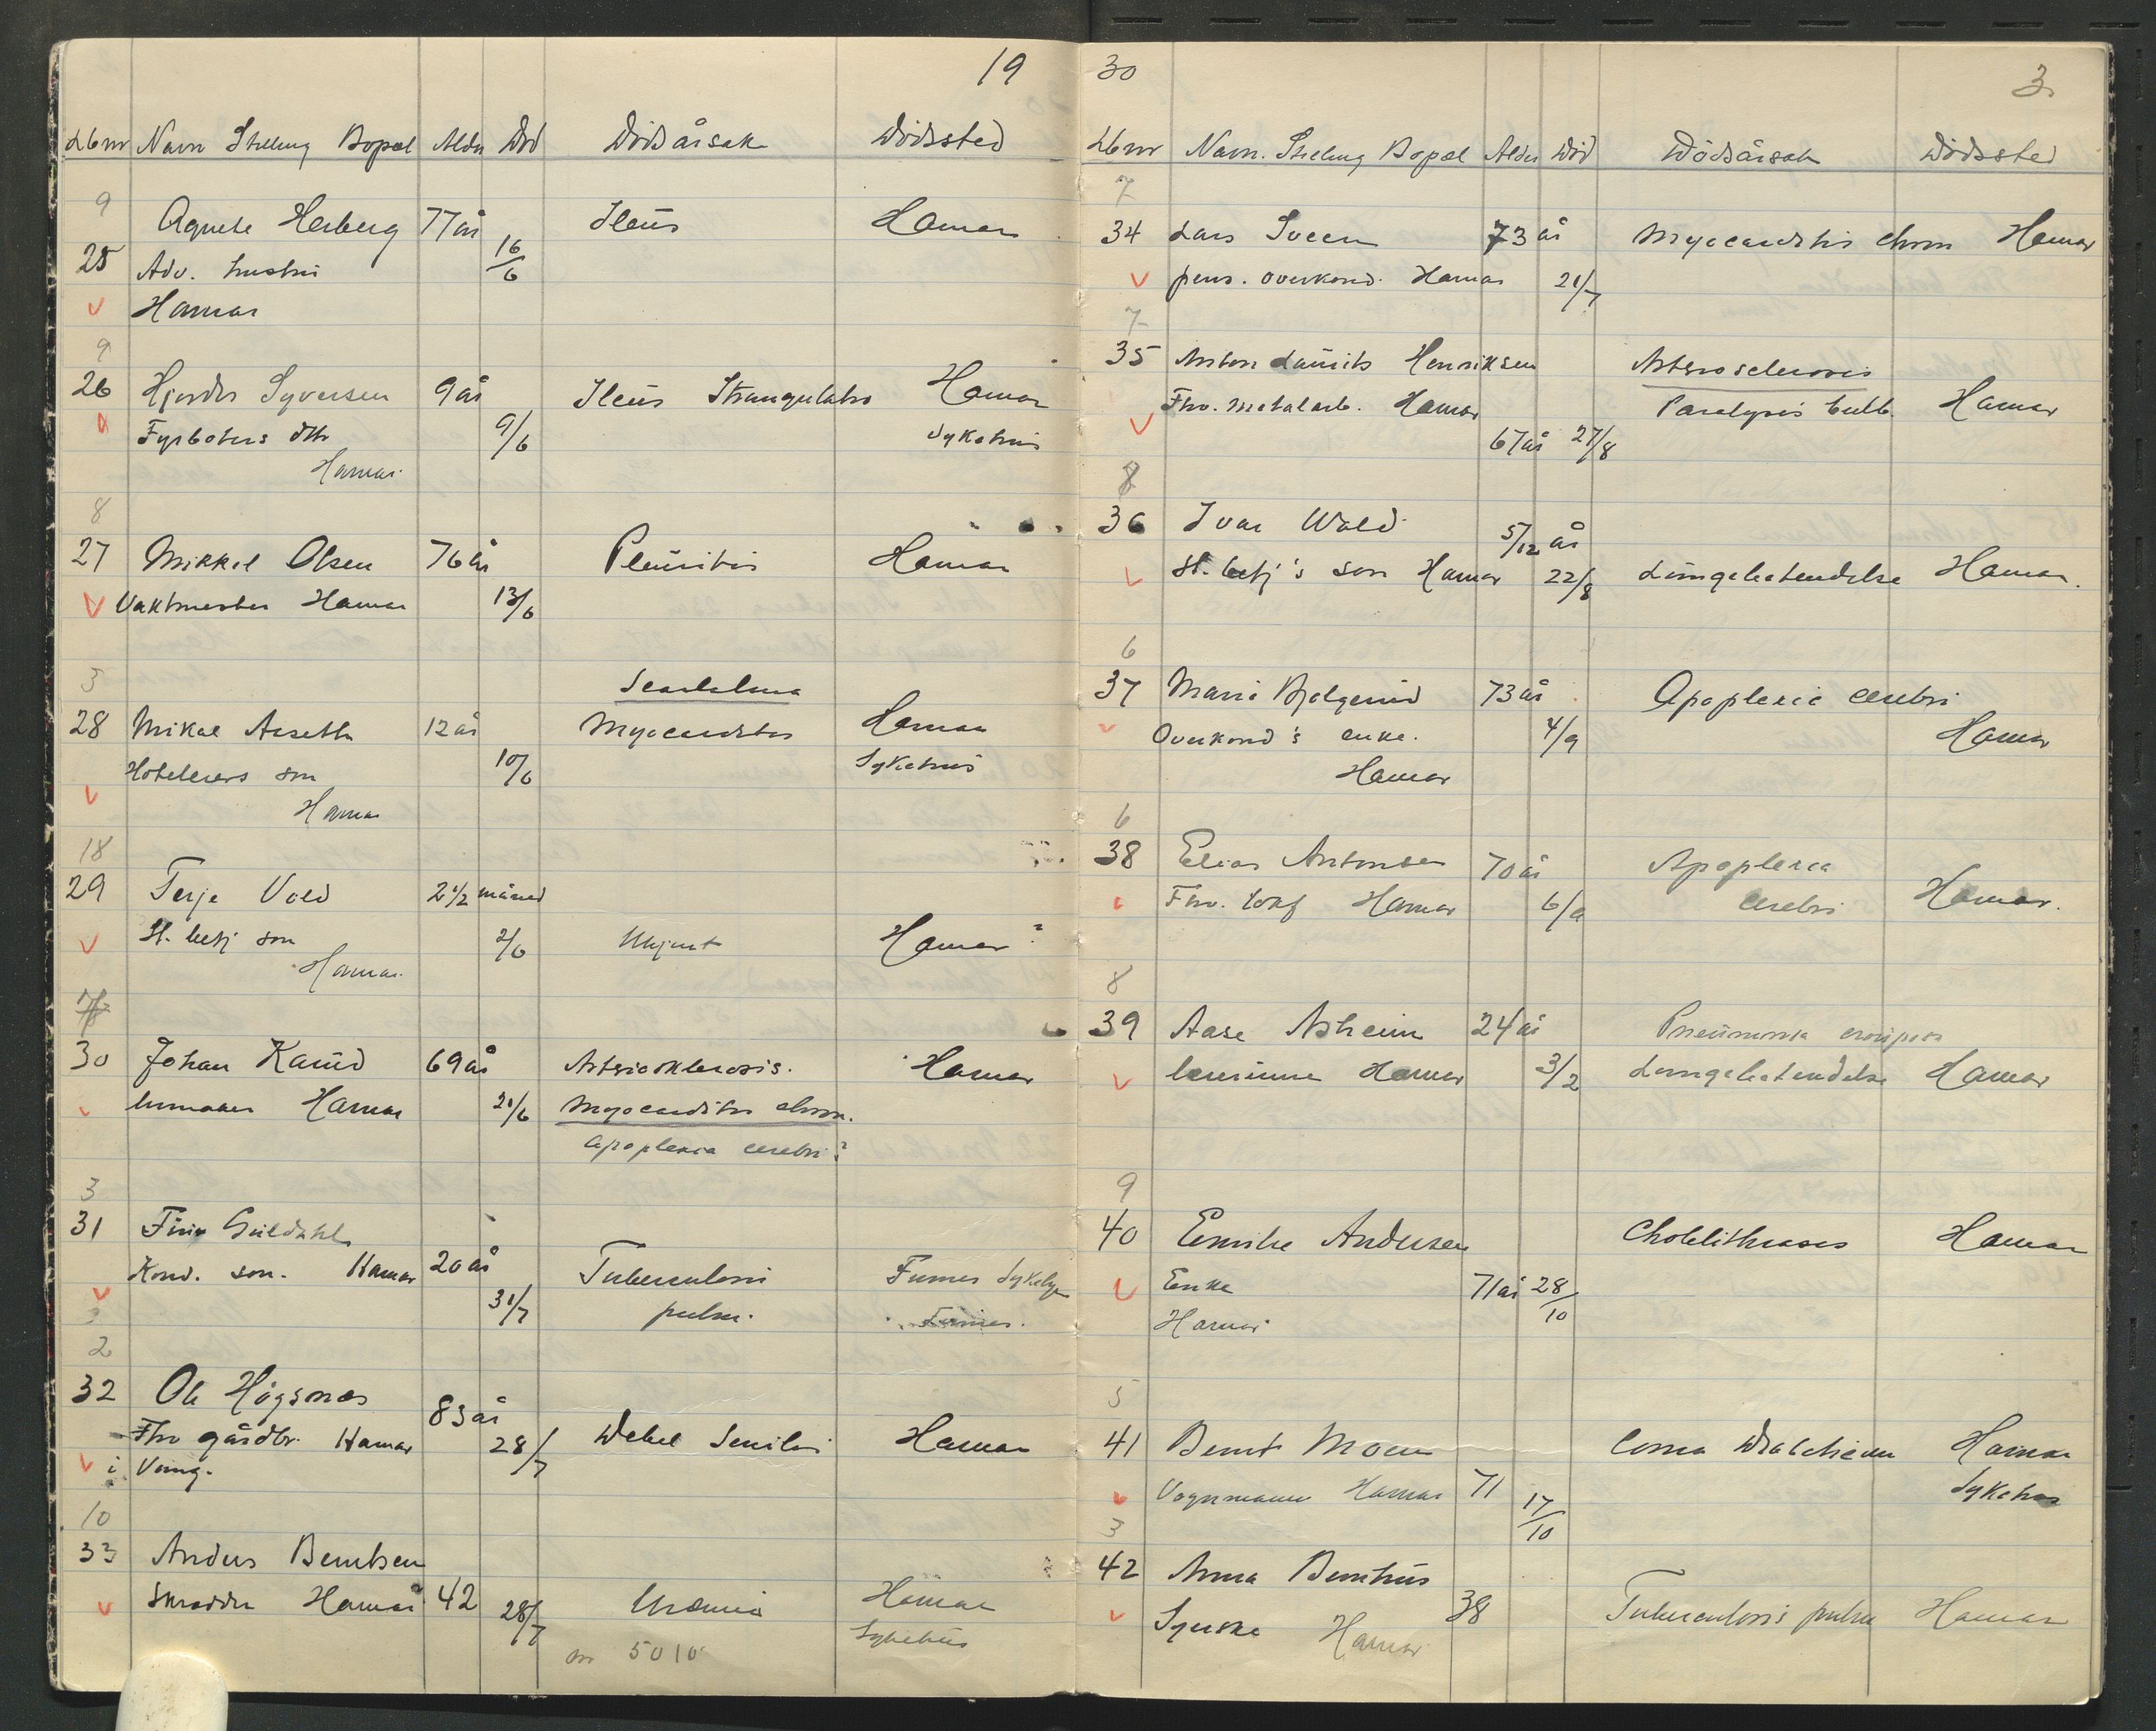 19
Lbnr Navn Stilling Bopæl Alder Död Dödsårsak Dödssted
9
Agnete Herberg 77 år Ileus Hamar
25 Adv. hustru 16/6
Hamar
9
26 Hjørdis Syversen 9 år Ileus Strangulatio Hamar
Fyrbøters dtr 9/6 Sykehus
Hamar
8
27 Mikkel Olsen 76 år Pleuritis Hamar
Vaktmester Hamar 13/6
3
Scarlatina
28 Mikal Aaseth 12 år Myocarditis Hamar
Hoteleiers søn 10/6 Sykehus
Hamar
18
29 Terje Vold 2 1/2 måned
St. betj søn 2/6 Ukjent Hamar ?
Hamar
30 Johan Kaurud 69 år Arteriosklerosis. Hamar
Hamar 21/6 Myocarditis chron.
Apoplexia cerebri?
3
31 Finn Guldahl
Kond. søn. Hamar 20 år Tuberculosis Furnes Sykehje
31/7 pulm. Furnes.
2
32 Ole Högsnes 83 år
Fhv gårdbr. Hamar 28/7 Debil Senilis Hamar
i Vang.
10
33 Anders Berntsen
Skrædder Hamar 42 28/7 Uræmia Hamar
nr 5010 Sykehus
30 3
Lbnr Navn. Stilling Bopæl Alder Död Dödsårsak Dödssted
7
34 Lars Sveen 73 år Myocarditis chron Hamar
pens. overkond. Hamar 21/7
7
35 Anton Laurits Henriksen Arteriosclerosis
Fhv. metalarb. Hamar Paralysis bulb. Hamar
67 år 27/8
8
36 Ivar Wold 5/12 år
St. betj's søn Hamar 22/8 Lungebetendelse Hamar.
6
37 Marie Bjølgerud 73 år Apoplexia cerebri
Overkond's enke. 4/9 Hamar
Hamar
6
38 Elias Antonsen 70 år Apoplexia
Fhv. lokf Hamar 6/9 cerebri Hamar.
8
39 Aase Asheim 24 år Pneumonia crouposa
lærerinne Hamar 3/2 Lungebetendelse Hamar
9
40 Emilie Andersen Cholelithiasis Hamar
Enke 71 år 28/10
Hamar
5
41 Bernt Moen Coma Diabeticum Hamar
Vognmann Hamar 71 17/10 Sykehus
3
42 Anna Berntsen
Syerske Hamar 38 Tuberculosis pulm Hamar